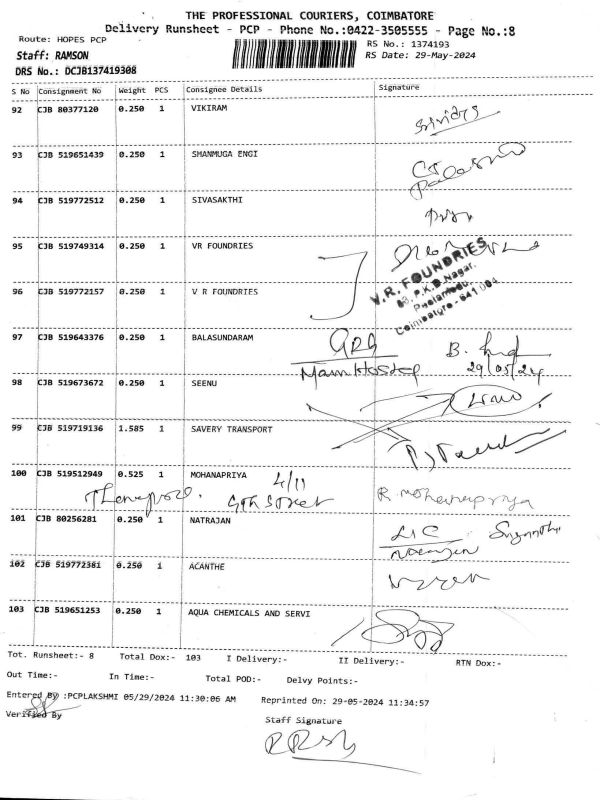 THE PROFESSIONAL COURIERS, COIMBATORE
Delivery Runsheet - PCP - Phone No.:0422-3505555 - Page No.:8
Route: HOPES PCP
RS No.: 1374193
Staff: RAMSON
RS Date: 29-May-2024
DRS No.: DCJB137419308
S No Consignment No Weight PCS Consignee Details Signature
92 CJB 80377120 0.250 1 VIKIRAM
93 CJB 519651439 0.250 1 SHANMUGA ENGI
94 CJB 519772512 0.250 1 SIVASAKTHI
95 CJB 519749314 0.250 1 VR FOUNDRIES
V.R. FOUNDRIES
63, P.K.D.Nagar,
Peelamedu,
Coimbatore - 641 004
96 CJB 519772157 0.250 1 V R FOUNDRIES
97 CJB 519643376 0.250 1 BALASUNDARAM
GRG B.
Main Hostel 29/05/24
98 CJB 519673672 0.250 1 SEENU
99 CJB 519719136 1.585 1 SAVERY TRANSPORT
100 CJB 519512949 0.525 1 MOHANAPRIYA 4/11
9th Street R. Mohanapriya
101 CJB 80256281 0.250 1 NATRAJAN
LIC
102 CJB 519772381 0.250 1 ACANTHE
103 CJB 519651253 0.250 1 AQUA CHEMICALS AND SERVI
Tot. Runsheet:- 8 Total Dox:- 103 I Delivery:- II Delivery:- RTN Dox:-
Out Time:- In Time:- Total POD:- Delvy Points:-
Entered By :PCPLAKSHMI 05/29/2024 11:30:06 AM Reprinted On: 29-05-2024 11:34:57
Verified By
Staff Signature